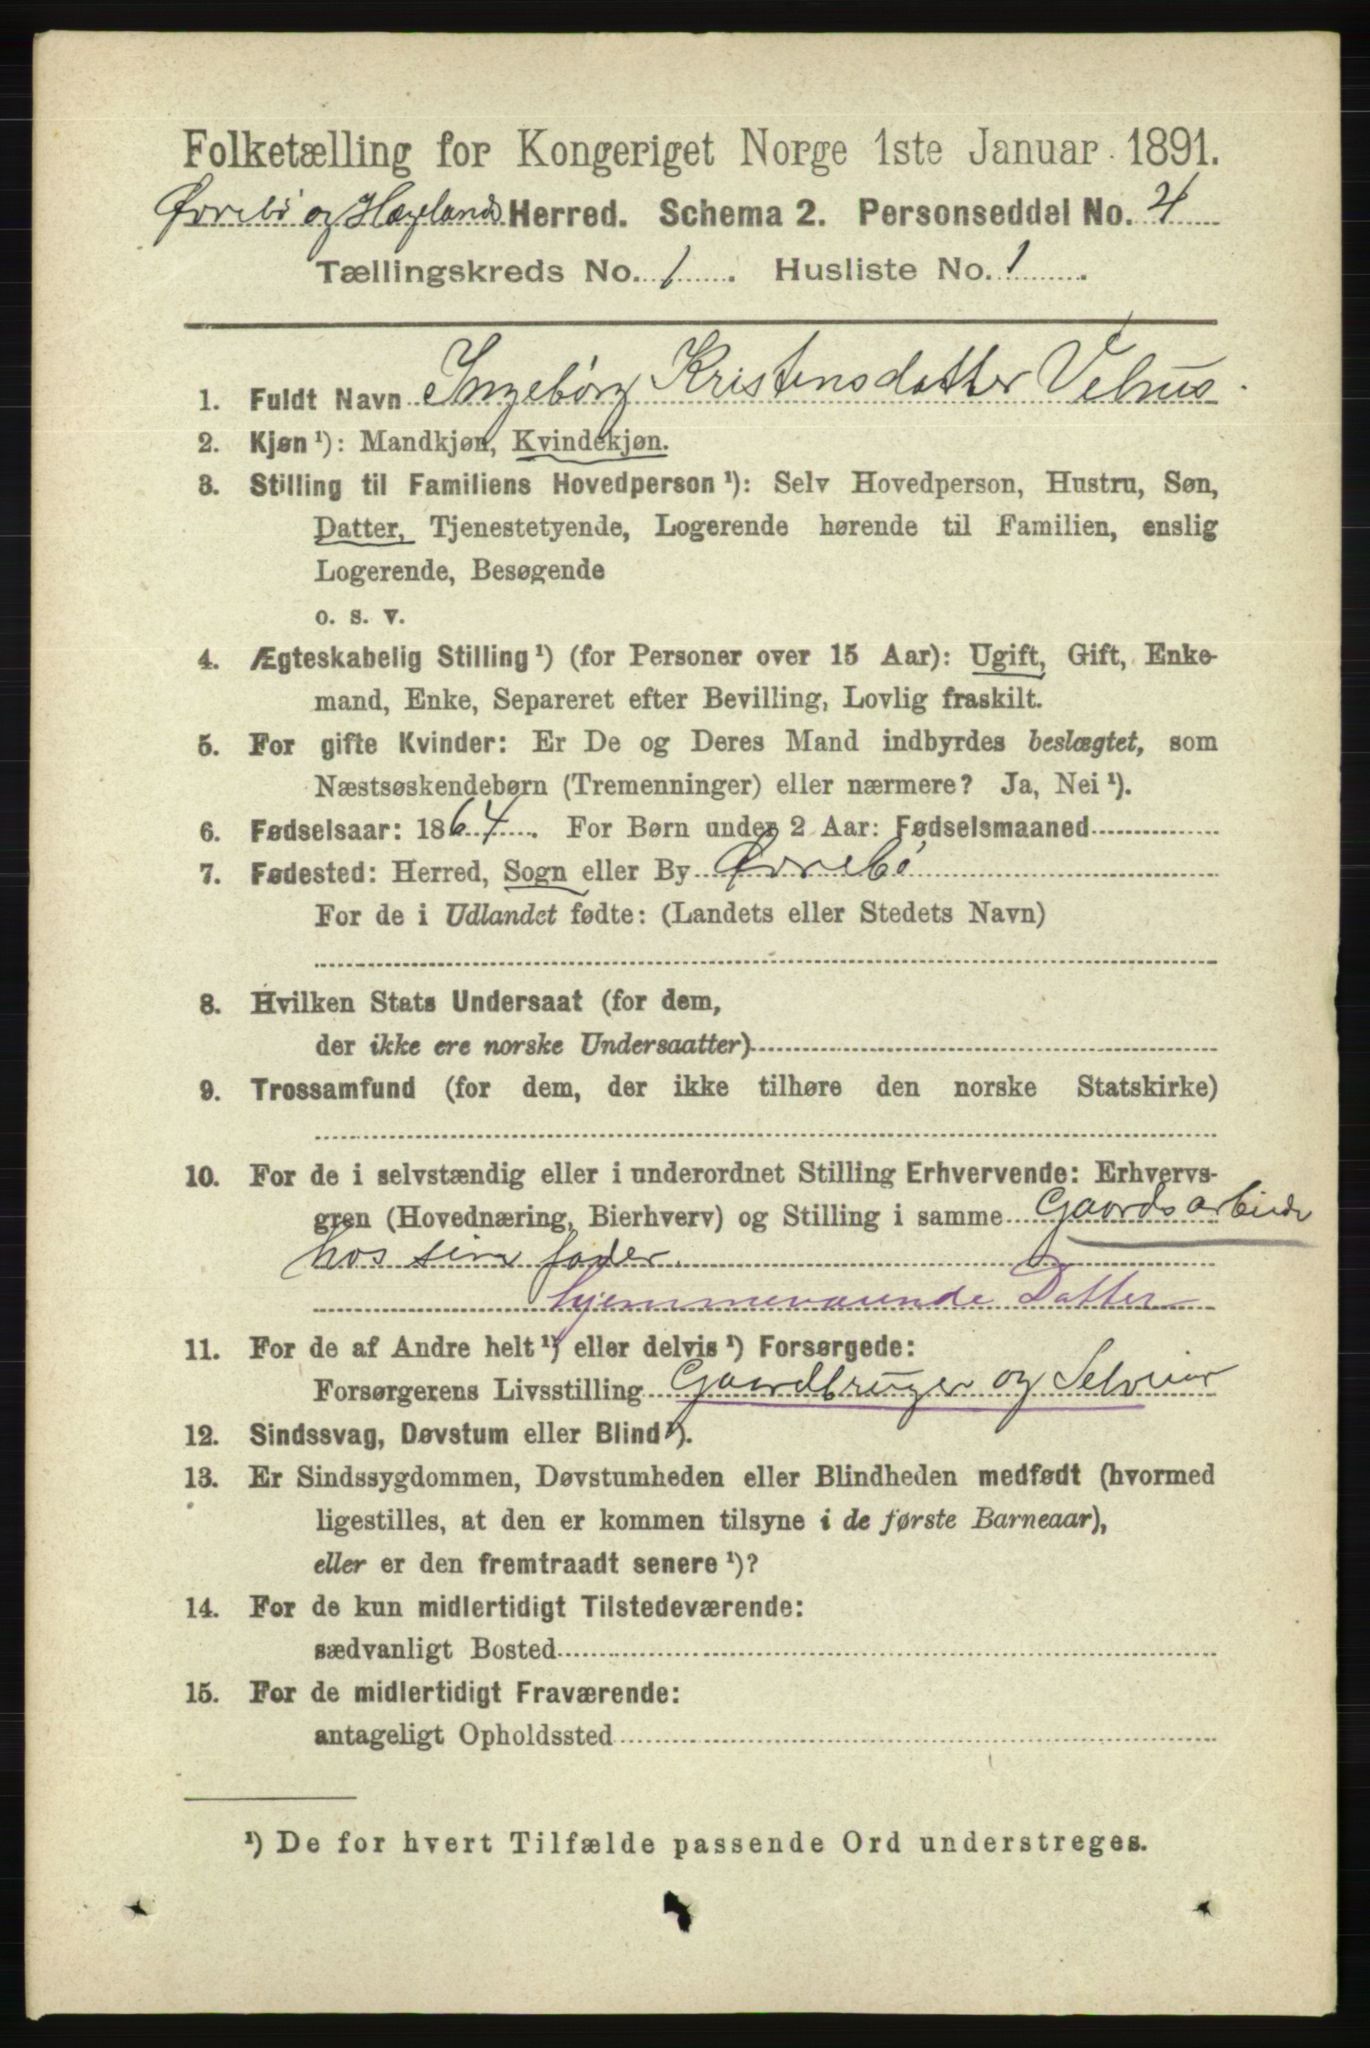 Folketælling for Kongeriget Norge 1ste Januar 1891.
Øvrebø og Hægelands Herred. Schema 2. Personseddel No. 4
Tællingskreds No. 1. Husliste No. 1.
1. Fuldt Navn Ingebørg Kristensdatter Vehus.
2. Kjøn ¹): Mandkjøn, Kvindekjøn.
3. Stilling til Familiens Hovedperson ¹): Selv Hovedperson, Hustru, Søn,
Datter, Tjenestetyende, Logerende hørende til Familien, enslig
Logerende, Besøgende
o. s. v.
4. Ægteskabelig Stilling ¹) (for Personer over 15 Aar): Ugift, Gift, Enke-
mand, Enke, Separeret efter Bevilling, Lovlig fraskilt.
5. For gifte Kvinder: Er De og Deres Mand indbyrdes beslægtet, som
Næstsøskendebørn (Tremenninger) eller nærmere? Ja, Nei ¹).
6. Fødselsaar: 1864. For Børn under 2 Aar: Fødselsmaaned
7. Fødested: Herred, Sogn eller By Øvrebø
For de i Udlandet fødte: (Landets eller Stedets Navn)
8. Hvilken Stats Undersaat (for dem,
der ikke ere norske Undersaatter)
9. Trossamfund (for dem, der ikke tilhøre den norske Statskirke)
10. For de i selvstændig eller i underordnet Stilling Erhvervende: Erhvervs-
gren (Hovednæring, Bierhverv) og Stilling i samme Gaardsarbeide
hos sin fader.
hjemmeværende Datter
11. For de af Andre helt ¹) eller delvis ¹) Forsørgede:
Forsørgerens Livsstilling Gaardbruger og Selveier
12. Sindssvag, Døvstum eller Blind ¹).
13. Er Sindssygdommen, Døvstumheden eller Blindheden medfødt (hvormed
ligestilles, at den er kommen tilsyne i de første Barneaar),
eller er den fremtraadt senere ¹)?
14. For de kun midlertidigt Tilstedeværende:
sædvanligt Bosted
15. For de midlertidigt Fraværende:
antageligt Opholdssted
¹) De for hvert Tilfælde passende Ord understreges.